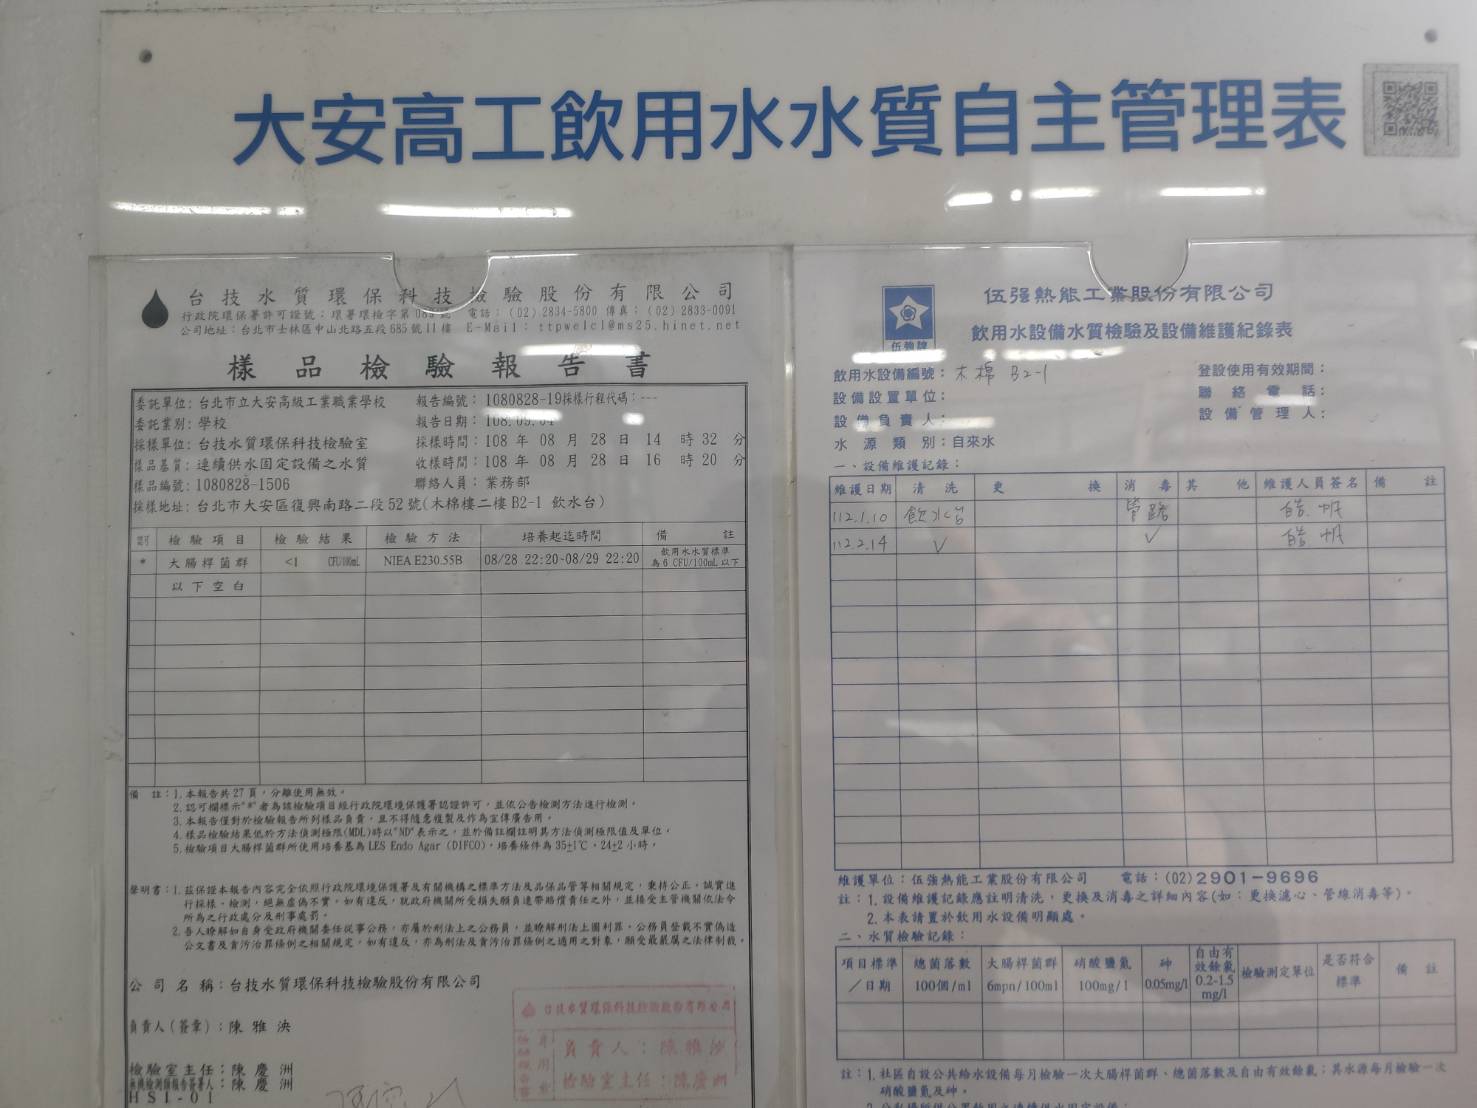 大安高工飲用水水質自主管理表
台技水質環保科技檢驗股份有限公司
行政院環保署許可證號：環署環檢字第 號 電話：(02) 2834-5800 傳真：(02) 2833-0091
公司地址：台北市士林區中山北路五段685號11樓 E-Mail：ttpwelcl@ms25.hinet.net
樣品檢驗報告書
委託單位：台北市立大安高級工業職業學校 報告編號：1080828-19採樣行程代碼：---
委託業別：學校 報告日期：108.09.04
採樣單位：台技水質環保科技檢驗室 採樣時間：108 年 08 月 28 日 14 時 32 分
樣品基質：連續供水固定設備之水質 收樣時間：108 年 08 月 28 日 16 時 20 分
樣品編號：1080828-1506 聯絡人員：業務部
採樣地址：台北市大安區復興南路二段52號(木棉樓二樓 B2-1 飲水台)
認可 檢驗項目 檢驗結果 檢驗方法 培養起迄時間 備註
* 大腸桿菌群 <1 CFU/100mL NIEA E230.55B 08/28 22:20~08/29 22:20 飲用水水質標準為6 CFU/100mL以下
以下空白
備註：1.本報告共27頁，分離使用無效。
2.認可欄標示"*"者為該檢驗項目經行政院環境保護署認證許可，並依公告檢測方法進行檢測。
3.本報告僅對於檢驗報告所列樣品負責，且不得隨意複製及作為宣傳廣告用。
4.樣品檢驗結果低於方法偵測極限(MDL)時以"ND"表示之，並於備註欄註明其方法偵測極限值及單位。
5.檢驗項目大腸桿菌群所使用培養基為 LES Endo Agar (DIFCO)，培養條件為35±1℃，24±2小時。
聲明書：1.茲保證本報告內容完全依照行政院環境保護署及有關機構之標準方法及品保品管等相關規定，秉持公正、誠實進
行採樣、檢測，絕無虛偽不實，如有違反，就政府機關所受損失願負連帶賠償責任之外，並接受主管機關依法令
所為之行政處分及刑事處罰。
2.吾人瞭解如自身受政府機關委任從事公務，亦屬於刑法上之公務員，並瞭解刑法上圖利罪、公務員登載不實偽造
公文書及貪污治罪條例之相關規定，如有違反，亦為刑法及貪污治罪條例之適用之對象，願受最嚴厲之法律制裁。
公司名稱：台技水質環保科技檢驗股份有限公司
負責人(簽章)：陳雅泱
檢驗室主任：陳慶洲
無機檢測類報告簽署人：陳慶洲
HSI-01
台技水質環保科技檢驗股份有限公司
負責人：陳雅泱
檢驗室主任：陳慶洲
伍強牌
伍强熱能工業股份有限公司
飲用水設備水質檢驗及設備維護紀錄表
飲用水設備編號：木棉 B2-1 登設使用有效期間：
設備設置單位： 聯絡電話：
設備負責人： 設備管理人：
水源類別：自來水
一、設備維護記錄：
維護日期 清洗 更換 消毒 其他 維護人員簽名 備註
112.1.10 飲水台 管路
112.2.14 √ √
維護單位：伍強熱能工業股份有限公司 電話：(02)2901-9696
註：1.設備維護記錄應註明清洗，更換及消毒之詳細內容(如：更換濾心、管線消毒等)。
2.本表請置於飲用水設備明顯處。
二、水質檢驗記錄：
項目標準／日期 總菌落數100個/ml 大腸桿菌群6mpn/100ml 硝酸鹽氮100mg/l 砷0.05mg/l 自由有效餘氯0.2-1.5mg/l 檢驗測定單位 是否符合標準 備註
註：1.社區自設公共給水設備每月檢驗一次大腸桿菌群、總菌落數及自由有效餘氯；其水源每月檢驗一次
硝酸鹽氮及砷。